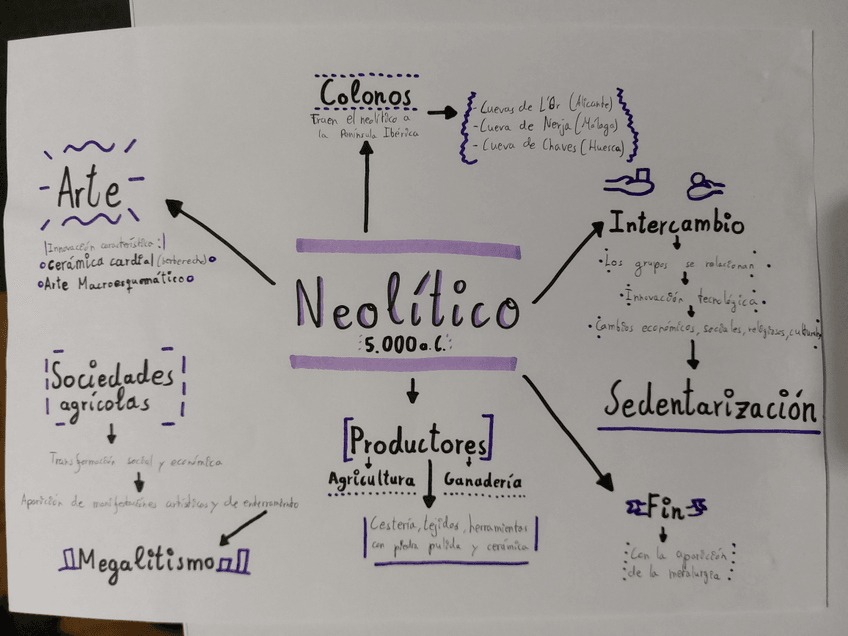 Colonos
Traen el neolítico a
la Península Ibérica
-Cuevas de L'Or (Alicante)
-Cueva de Nerja (Málaga)
-Cueva de Chaves (Huesca)
Arte
Innovación característico:
Cerámica cardial (berberecho)
Arte Macroesquemático
Intercambio
Los grupos se relacionan
Innovación tecnológica
Cambios económicos, sociales, religiosos, culturales
Sedentarización
Neolítico
5.000 a.C.
Sociedades
agrícolas
Transformación social y económica
Aparición de manifestaciones artísticas y de enterramiento
Megalitismo
[Productores]
Agricultura Ganadería
Cestería, tejidos, herramientas
con piedra pulida y cerámica
Fin
Con la aparición
de la metalurgia